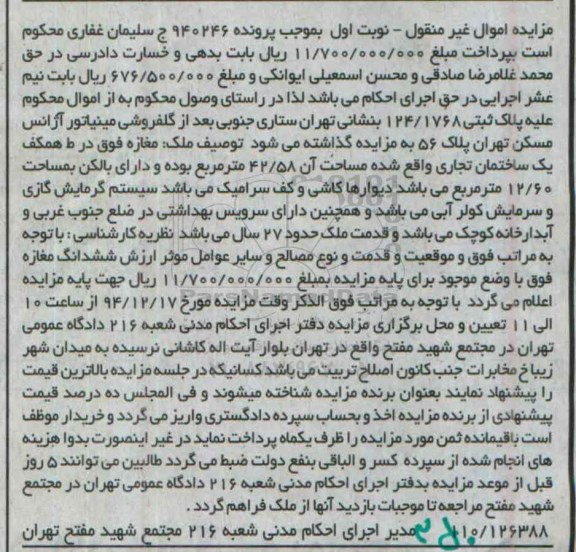 مزایده اموال غیر منقول - نوبت اول بموجب پرونده ۹۴۰۲۴۶ ج سلیمان غفاری محکوم
است بپرداخت مبلغ ۱۱/۷۰۰/۰۰۰/۰۰۰ ریال بابت بدهی و خسارت دادرسی در حق
محمد غلامرضا صادقی و محسن اسمعیلی ایوانکی و مبلغ ۶۷۶/۵۰۰/۰۰۰ ریال بابت نیم
عشر اجرایی در حق اجرای احکام می باشد لذا در راستای وصول محکوم به از اموال محکوم
علیه پلاک ثبتی ۱۲۴/۱۷۶۸ بنشانی تهران ستاری جنوبی بعد از گلفروشی مینیاتور آژانس
مسکن تهران پلاک ۵۶ به مزایده گذاشته می شود توصیف ملک: مغازه فوق در ط همکف
یک ساختمان تجاری واقع شده مساحت آن ۴۲/۵۸ مترمربع بوده و دارای بالکن بمساحت
۱۲/۶۰ مترمربع می باشد دیوارها کاشی و کف سرامیک می باشد سیستم گرمایش گازی
و سرمایش کولر آبی می باشد و همچنین دارای سرویس بهداشتی در ضلع جنوب غربی و
آبدارخانه کوچک می باشد و قدمت ملک حدود ۲۷ سال می باشد نظریه کارشناسی: با توجه
به مراتب فوق و موقعیت و قدمت و نوع مصالح و سایر عوامل موثر ارزش ششدانگ مغازه
فوق با وضع موجود برای پایه مزایده بمبلغ ۱۱/۷۰۰/۰۰۰/۰۰۰ ریال جهت پایه مزایده
اعلام می گردد با توجه به مراتب فوق الذکر وقت مزایده مورخ ۹۴/۱۲/۱۷ از ساعت ۱۰
الی ۱۱ تعیین و محل برگزاری مزایده دفتر اجرای احکام مدنی شعبه ۲۱۶ دادگاه عمومی
تهران در مجتمع شهید مفتح واقع در تهران بلوار آیت اله کاشانی نرسیده به میدان شهر
زیبا خ مخابرات جنب کانون اصلاح تربیت می باشد کسانیکه در جلسه مزایده بالاترین قیمت
را پیشنهاد نمایند بعنوان برنده مزایده شناخته میشوند و فی المجلس ده درصد قیمت
پیشنهادی از برنده مزایده اخذ و بحساب سپرده دادگستری واریز می گردد و خریدار موظف
است باقیمانده ثمن مورد مزایده را ظرف یکماه پرداخت نماید در غیر اینصورت بدوا هزینه
های انجام شده از سپرده کسر و الباقی بنفع دولت ضبط می گردد طالبین می توانند ۵ روز
قبل از موعد مزایده بدفتر اجرای احکام مدنی شعبه ۲۱۶ دادگاه عمومی تهران در مجتمع
شهید مفتح مراجعه تا موجبات بازدید آنها از ملک فراهم گردد.
۱۱۰/۱۲۶۳۸۸ مدیر اجرای احکام مدنی شعبه ۲۱۶ مجتمع شهید مفتح تهران